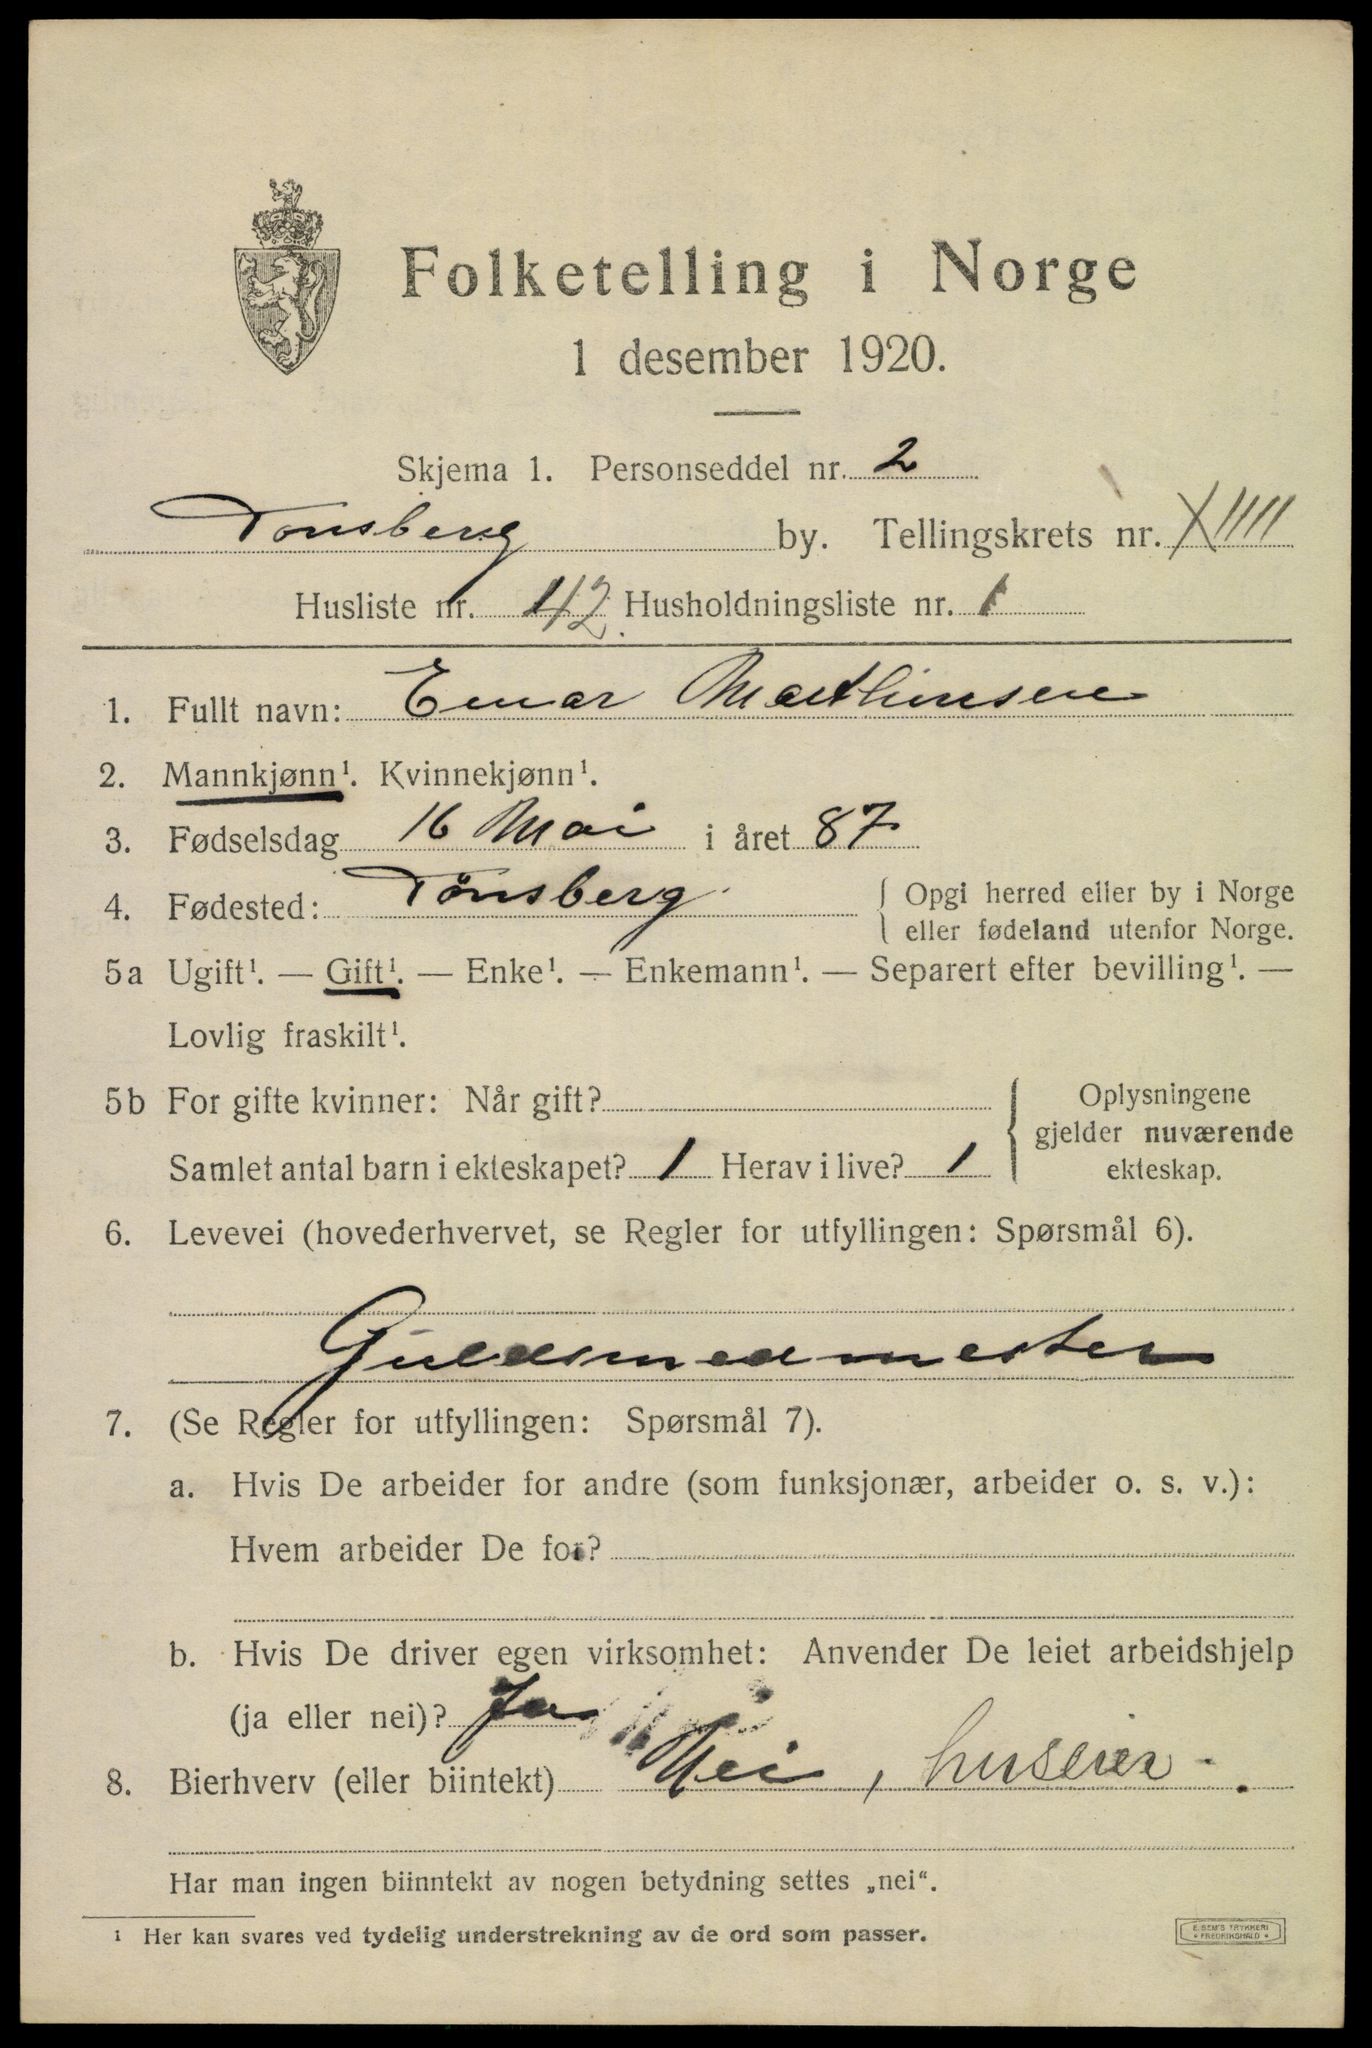 Folketelling i Norge
1 desember 1920.
Skjema 1. Personseddel nr. 2
Tønsberg by. Tellingskrets nr. XIIII
Husliste nr. 42 Husholdningsliste nr. 1
1. Fullt navn: Einar Mathinsen
2. Mannkjønn¹. Kvinnekjønn¹.
3. Fødselsdag 16 Mai i året 87
4. Fødested: Tønsberg { Opgi herred eller by i Norge
eller fødeland utenfor Norge.
5a Ugift¹. — Gift¹. — Enke¹. — Enkemann¹. — Separert efter bevilling¹. —
Lovlig fraskilt¹.
5b For gifte kvinner: Når gift?
Samlet antal barn i ekteskapet? 1 Herav i live? 1
Oplysningene
gjelder nuværende
ekteskap.
6. Levevei (hovederhvervet, se Regler for utfyllingen: Spørsmål 6).
Guldsmedmester
7. (Se Regler for utfyllingen: Spørsmål 7).
a. Hvis De arbeider for andre (som funksjonær, arbeider o. s. v.):
Hvem arbeider De for?
b. Hvis De driver egen virksomhet: Anvender De leiet arbeidshjelp
(ja eller nei)? Ja
8. Bierhverv (eller biintekt) Nei, huseier
Har man ingen biinntekt av nogen betydning settes „nei“.
¹ Her kan svares ved tydelig understrekning av de ord som passer.
E. SEM'S TRYKKERI
FREDRIKSHALD